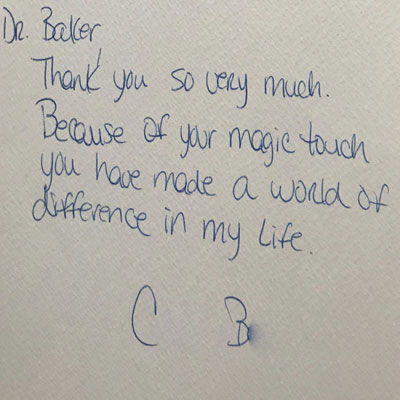 Dr. Baker,
Thank you so very much.
Because of your magic touch
you have made a world of
difference in my life.
C B